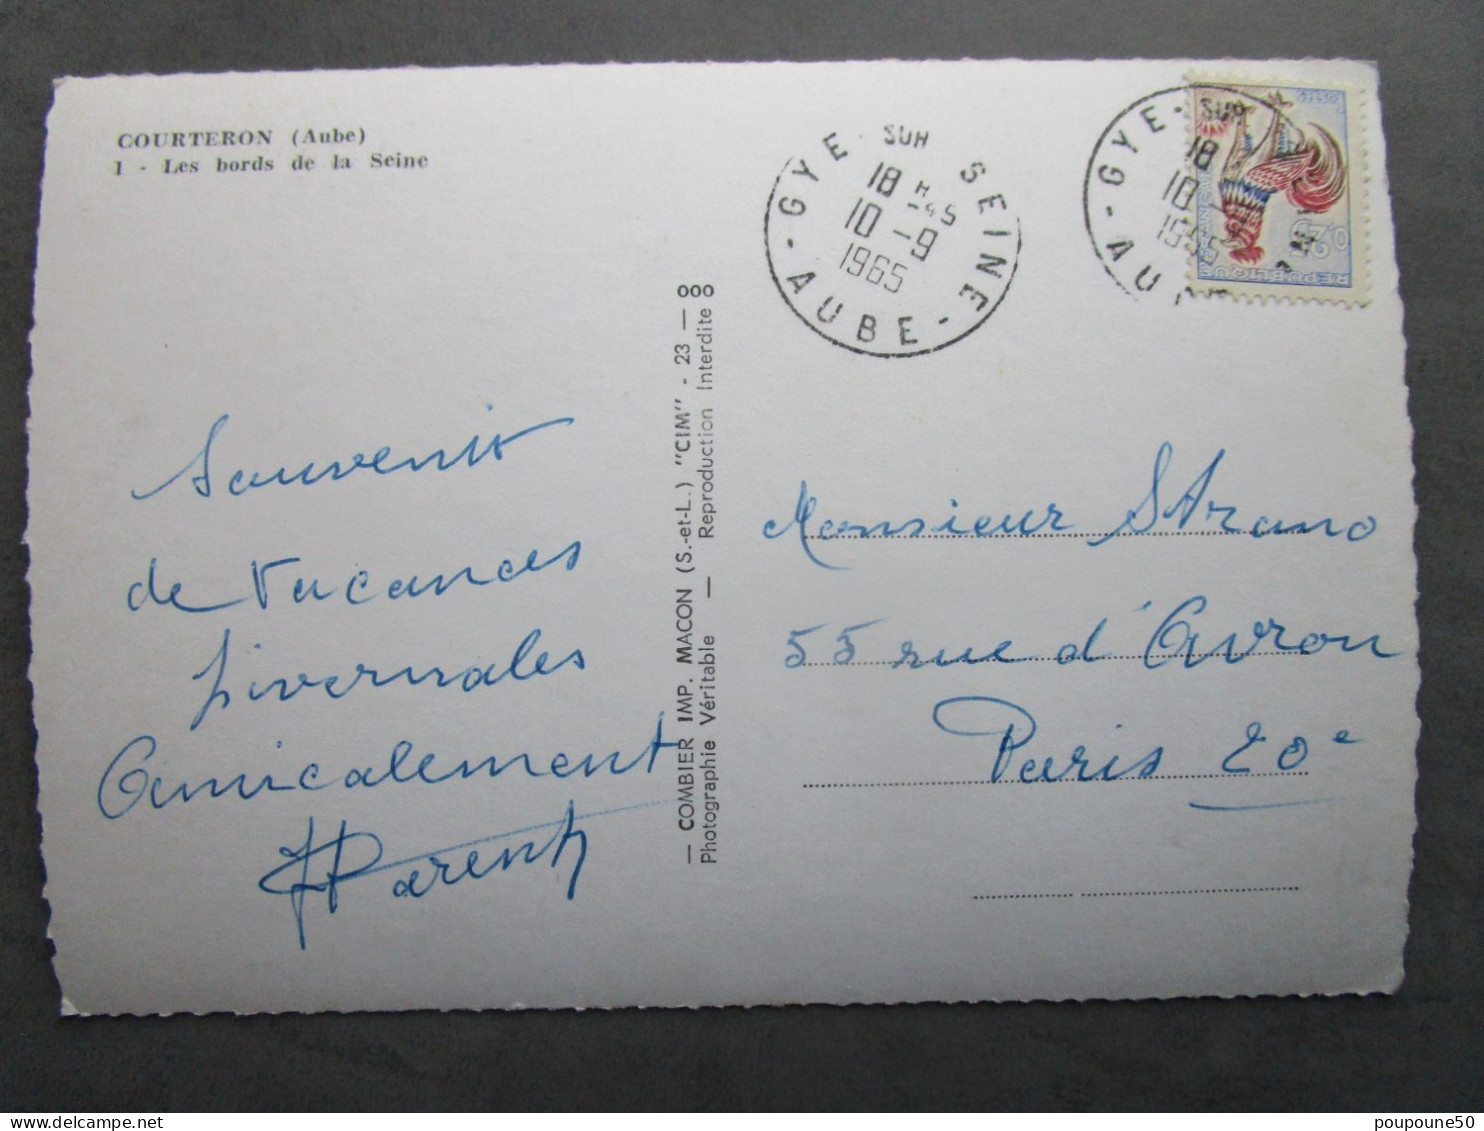 COURTERON (Aube)
1 - Les bords de la Seine
Souvenir
de Vacances
hivernales
Amicalement
Parent
— COMBIER IMP. MACON (S.-et-L.) "CIM" - 23 — ooo
Photographie Véritable — Reproduction Interdite
GYE SUR SEINE
18 H -45
10 -9
1965
- AUBE -
GYE SUR
18
10
1965
REPUBLIQUE FRANÇAISE
0,25
POSTES
Monsieur Strano
55 rue d'Avron
Paris 20e
poupoune50
delcampe.net